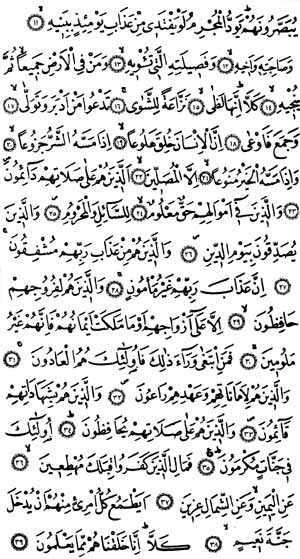 يُبَصَّرُونَهُمْ يَوَدُّ الْمُجْرِمُ لَوْ يَفْتَدِي مِنْ عَذَابِ يَوْمِئِذٍ بِبَنِيهِ ﴿١١﴾
وَصَاحِبَتِهِ وَأَخِيهِ ﴿١٢﴾ وَفَصِيلَتِهِ الَّتِي تُؤْوِيهِ ﴿١٣﴾ وَمَنْ فِي الْأَرْضِ جَمِيعًا ثُمَّ
يُنْجِيهِ ﴿١٤﴾ كَلَّا إِنَّهَا لَظَى ﴿١٥﴾ نَزَّاعَةً لِلشَّوَى ﴿١٦﴾ تَدْعُوا مَنْ أَدْبَرَ وَتَوَلَّى ﴿١٧﴾
وَجَمَعَ فَأَوْعَى ﴿١٨﴾ إِنَّ الْإِنْسَانَ خُلِقَ هَلُوعًا ﴿١٩﴾ إِذَا مَسَّهُ الشَّرُّ جَزُوعًا ﴿٢٠﴾
وَإِذَا مَسَّهُ الْخَيْرُ مَنُوعًا ﴿٢١﴾ إِلَّا الْمُصَلِّينَ ﴿٢٢﴾ الَّذِينَ هُمْ عَلَى صَلَاتِهِمْ دَائِمُونَ
﴿٢٣﴾ وَالَّذِينَ فِي أَمْوَالِهِمْ حَقٌّ مَعْلُومٌ ﴿٢٤﴾ لِلسَّائِلِ وَالْمَحْرُومِ ﴿٢٥﴾ وَالَّذِينَ
يُصَدِّقُونَ بِيَوْمِ الدِّينِ ﴿٢٦﴾ وَالَّذِينَ هُمْ مِنْ عَذَابِ رَبِّهِمْ مُشْفِقُونَ
﴿٢٧﴾ إِنَّ عَذَابَ رَبِّهِمْ غَيْرُ مَأْمُونٍ ﴿٢٨﴾ وَالَّذِينَ هُمْ لِفُرُوجِهِمْ
حَافِظُونَ ﴿٢٩﴾ إِلَّا عَلَى أَزْوَاجِهِمْ أَوْ مَا مَلَكَتْ أَيْمَانُهُمْ فَإِنَّهُمْ غَيْرُ
مَلُومِينَ ﴿٣٠﴾ فَمَنِ ابْتَغَى وَرَاءَ ذَلِكَ فَأُولَئِكَ هُمُ الْعَادُونَ ﴿٣١﴾
وَالَّذِينَ هُمْ لِأَمَانَاتِهِمْ وَعَهْدِهِمْ رَاعُونَ ﴿٣٢﴾ وَالَّذِينَ هُمْ بِشَهَادَاتِهِمْ
قَائِمُونَ ﴿٣٣﴾ وَالَّذِينَ هُمْ عَلَى صَلَاتِهِمْ يُحَافِظُونَ ﴿٣٤﴾ أُولَئِكَ
فِي جَنَّاتٍ مُكْرَمُونَ ﴿٣٥﴾ فَمَالِ الَّذِينَ كَفَرُوا قِبَلَكَ مُهْطِعِينَ ﴿٣٦﴾
عَنِ الْيَمِينِ وَعَنِ الشِّمَالِ عِزِينَ ﴿٣٧﴾ أَيَطْمَعُ كُلُّ امْرِئٍ مِنْهُمْ أَنْ يُدْخَلَ
جَنَّةَ نَعِيمٍ ﴿٣٨﴾ كَلَّا إِنَّا خَلَقْنَاهُمْ مِمَّا يَعْلَمُونَ ﴿٣٩﴾